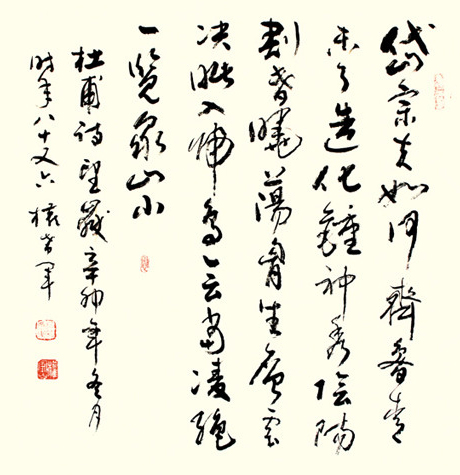 岱宗夫如何齊魯青
未了造化鍾神秀陰陽
割昏曉蕩胸生層雲
決眦入歸鳥会當凌絶
一覽众山小
杜甫詩望嶽辛卯年冬月
时年八十又六權希軍